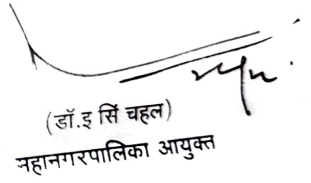 (डॉ.इ सिं चहल)
महानगरपालिका आयुक्त